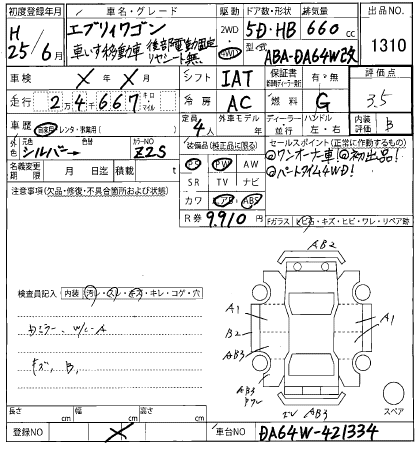 初度登録年月 車名・グレード 駆動 ドア数・形状 排気量 出品NO.
H 25年6月 エブリィワゴン 車いす移動車 後部電動固定 リヤシート無 2WD 4WD 5D・HB 660cc 1310
型式 ABA-DA64W改
車検 X年X月 シフト IAT 保証書 有・無 評価点
走行 24667 キロ マイル 冷房 AC 燃料 G 3.5
車歴 自家用 レンタ・事業用( ) 定員 4人 外車モデル 年 ディーラー・並行 ハンドル 左・右 内装評価 B
外色 元色 シルバー 色替 カラーNO Z2S
装備品(純正品に限る) セールスポイント(正常に作動するもの)
名義変更期限 月 日迄 積載 t PS PW AW
◎ワンオーナー車!◎初出品!
◎パートタイム4WD!
注意事項(欠品・修復・不具合箇所および状態) SR TV ナビ
カワ エアB ABS
R券 9,910円 Fガラス トビ石・キズ・ヒビ・ワレ・リペア跡
AB2
検査員記入 内装 汚レ・スレ・キズ・キレ・コゲ・穴
A1 A1
B2
AB3
Dミラー、W/C-A
キズ、B、
AB3
スペア
長さ cm 幅 cm 高さ cm
登録NO X 車台NO DA64W-421334